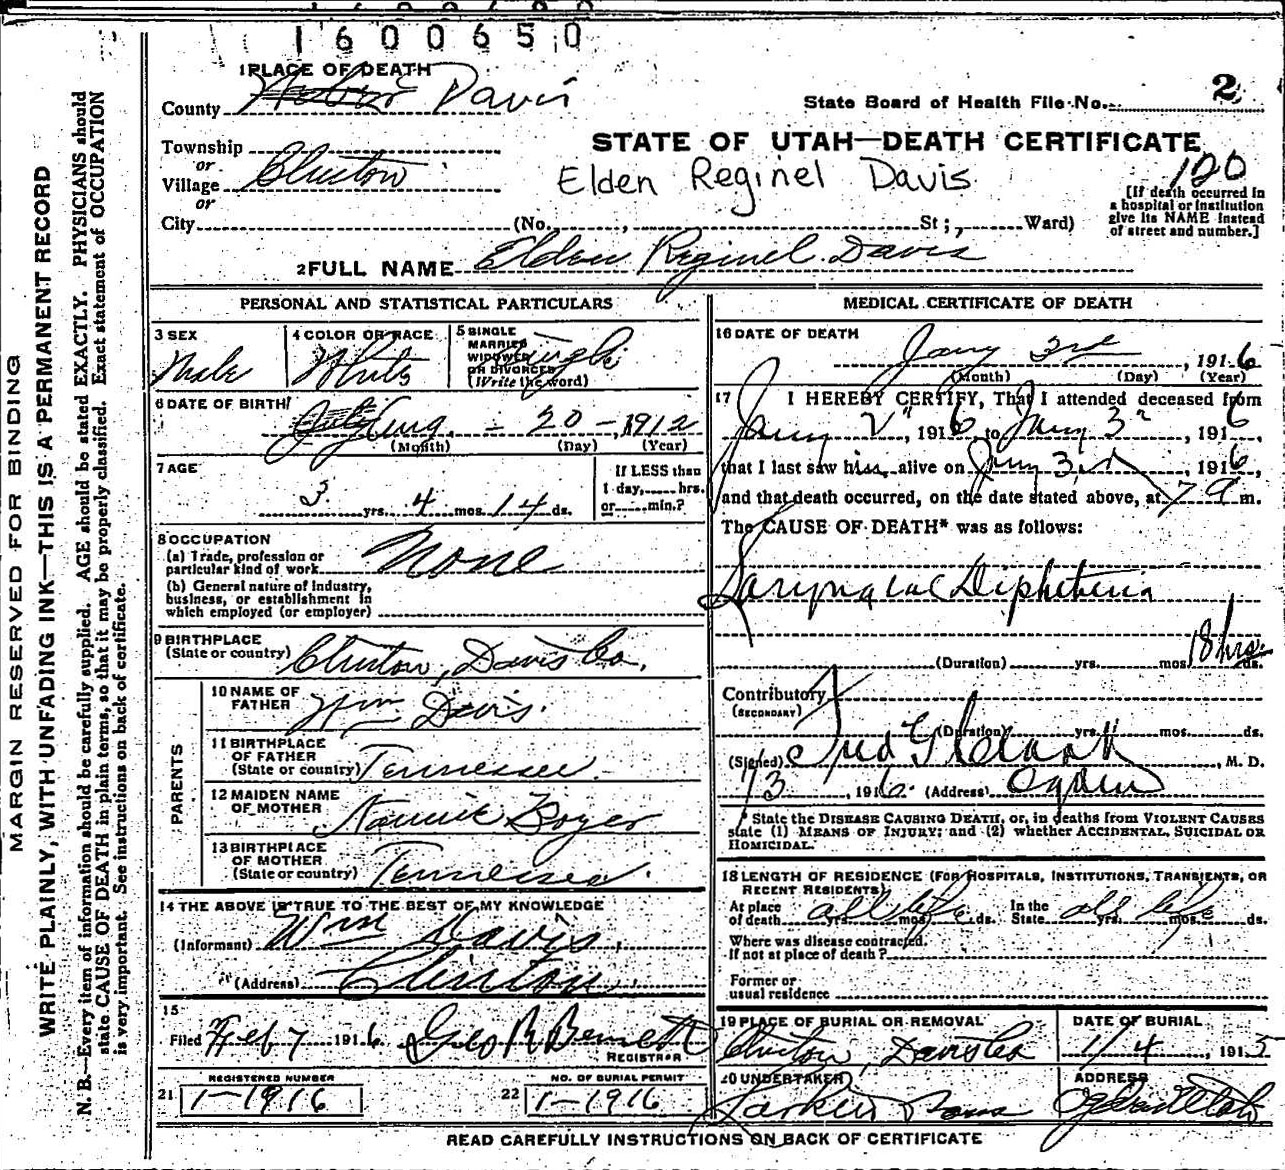 1600650
1 PLACE OF DEATH
County Weber Davis
State Board of Health File No. 2
STATE OF UTAH—DEATH CERTIFICATE
Township
or
Village Clinton
or
Elden Reginel Davis
120
[If death occurred in
a hospital or institution
give its NAME instead
of street and number.]
City (No. , St; , Ward)
2 FULL NAME Elden Reginel Davis
PERSONAL AND STATISTICAL PARTICULARS
3 SEX
Male
4 COLOR OR RACE
White
5 SINGLE
MARRIED
WIDOWED
OR DIVORCED
(Write the word)
Single
6 DATE OF BIRTH
July Aug. - 20 - 1912
(Month) (Day) (Year)
7 AGE
3 yrs. 4 mos. 14 ds.
If LESS than
1 day, hrs.
or min.?
8 OCCUPATION
(a) Trade, profession or
particular kind of work None
(b) General nature of industry,
business, or establishment in
which employed (or employer)
9 BIRTHPLACE
(State or country) Clinton, Davis Co.
PARENTS
10 NAME OF
FATHER Wm. Davis.
11 BIRTHPLACE
OF FATHER
(State or country) Tennessee.
12 MAIDEN NAME
OF MOTHER Nannie Boyer
13 BIRTHPLACE
OF MOTHER
(State or country) Tennessee.
14 THE ABOVE IS TRUE TO THE BEST OF MY KNOWLEDGE
(Informant) Wm Davis,
(Address) Clinton
15
Filed Feb 7 1916 Geo R Bennett
REGISTRAR
REGISTERED NUMBER
21 1-1916
NO. OF BURIAL PERMIT
22 1-1916
MEDICAL CERTIFICATE OF DEATH
16 DATE OF DEATH
Jany 3rd, 1916
(Month) (Day) (Year)
17 I HEREBY CERTIFY, That I attended deceased from
Jany 2", 1916, to Jany 3", 1916,
that I last saw him alive on Jany 3rd, 1916,
and that death occurred, on the date stated above, at 7 a m.
The CAUSE OF DEATH* was as follows:
Laryngeal Diphtheria
(Duration) yrs. mos. 18 hrs. ds.
Contributory
(SECONDARY)
(Duration) yrs. mos. ds.
(Signed) Fred G Clark, M. D.
1/3, 1916. (Address) Ogden
* State the DISEASE CAUSING DEATH, or, in deaths from VIOLENT CAUSES
state (1) MEANS OF INJURY; and (2) whether ACCIDENTAL, SUICIDAL OR
HOMICIDAL.
18 LENGTH OF RESIDENCE (FOR HOSPITALS, INSTITUTIONS, TRANSIENTS, OR
RECENT RESIDENTS)
At place
of death all life yrs. mos. ds.
In the
State all life yrs. mos. ds.
Where was disease contracted.
If not at place of death?
Former or
usual residence
19 PLACE OF BURIAL OR REMOVAL
Clinton, Davis Co
DATE OF BURIAL
1/4, 1915
20 UNDERTAKER
Larkin & Sons
ADDRESS
Ogden Utah
READ CAREFULLY INSTRUCTIONS ON BACK OF CERTIFICATE
MARGIN RESERVED FOR BINDING
WRITE PLAINLY, WITH UNFADING INK—THIS IS A PERMANENT RECORD
N. B.—Every item of information should be carefully supplied. AGE should be stated EXACTLY. PHYSICIANS should
state CAUSE OF DEATH in plain terms, so that it may be properly classified. Exact statement of OCCUPATION
is very important. See instructions on back of certificate.